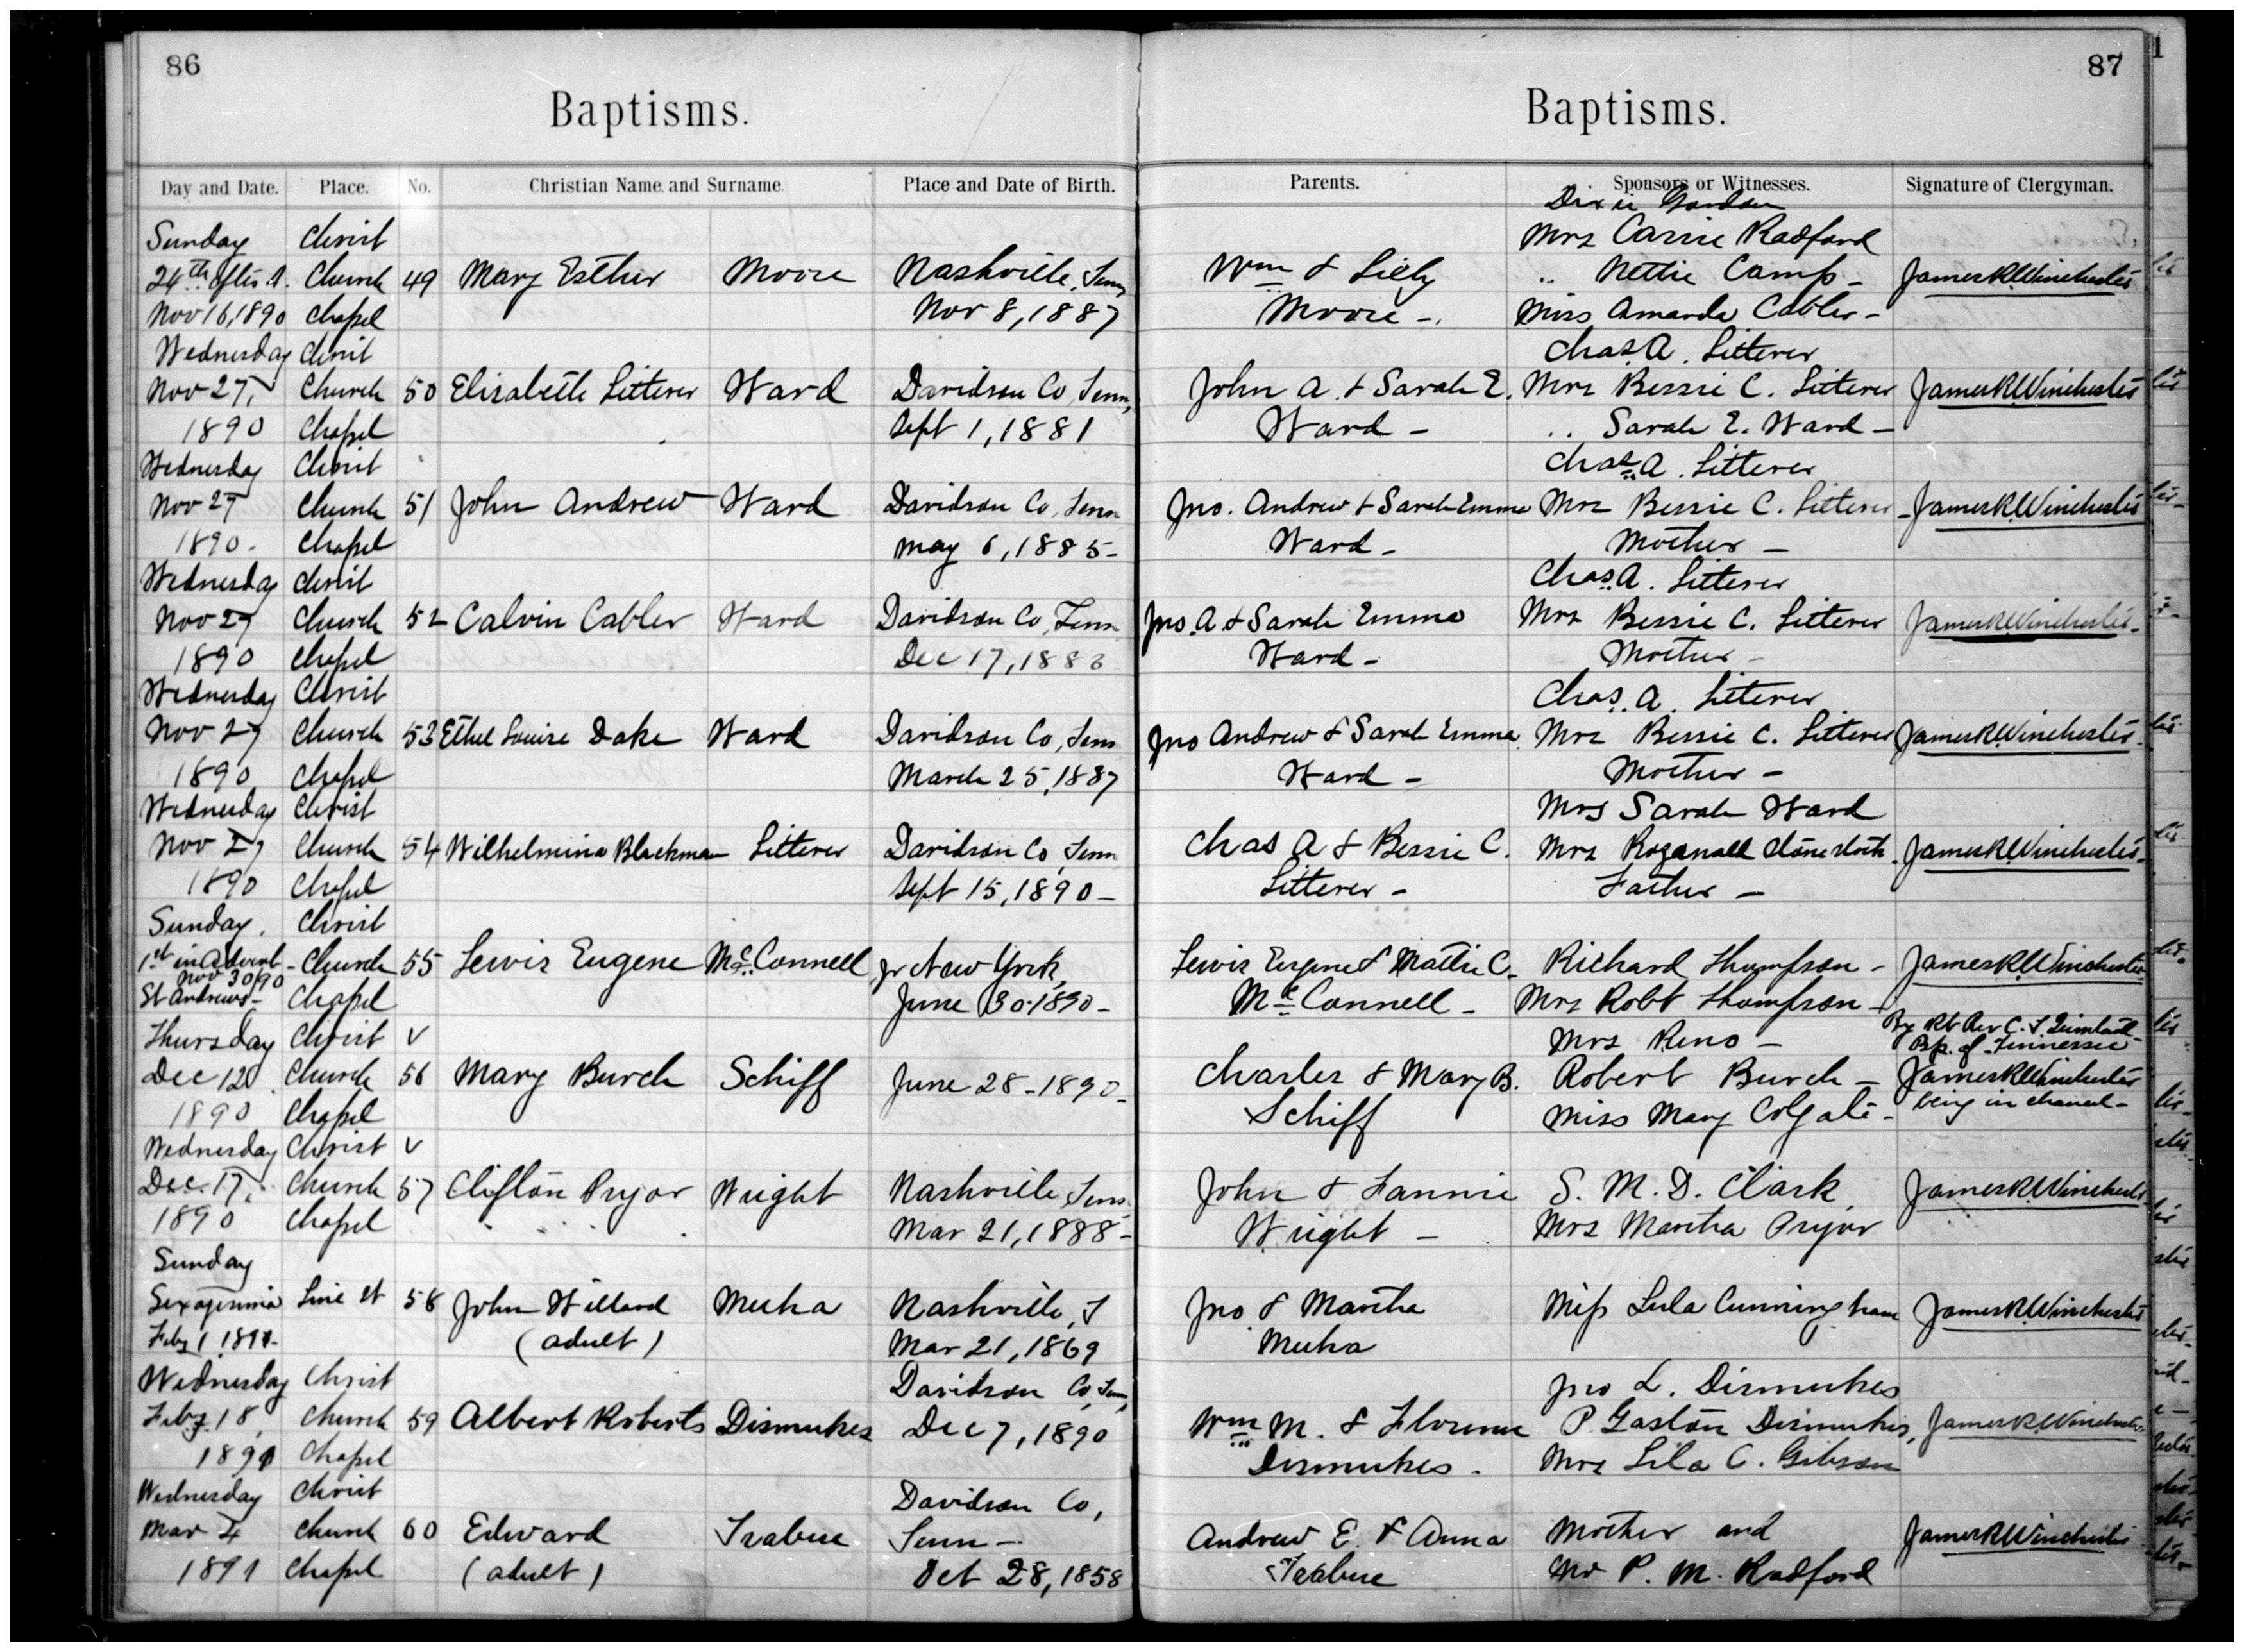 86
Baptisms.
Day and Date. Place. No. Christian Name and Surname. Place and Date of Birth.
Sunday Christ
24th after T. Church 49 Mary Esther Moore Nashville, Tenn
Nov 16, 1890 Chapel Nov 8, 1887
Wednesday Christ
Nov 27, Church 50 Elizabeth Litterer Ward Davidson Co, Tenn,
1890 Chapel Sept 1, 1881
Wednesday Christ
Nov 27 Church 51 John Andrew Ward Davidson Co, Tenn
1890- Chapel May 6, 1885-
Wednesday Christ
Nov 27 Church 52 Calvin Cabler Ward Davidson Co, Tenn
1890 Chapel Dec 17, 1883
Wednesday Christ
Nov 27 Church 53 Ethel Louise Dake Ward Davidson Co, Tenn
1890 Chapel March 25, 1887
Wednesday Christ
Nov 27 Church 54 Wilhelmina Blackman Litterer Davidson Co, Tenn
1890 Chapel Sept 15, 1890-
Sunday. Christ
1st in Advent- Church 55 Lewis Eugene McConnell Jr New York,
Nov 30/90
St Andrews- Chapel June 30-1890-
Thursday Christ v
Dec 12 Church 56 Mary Burch Schiff June 28-1890-
1890 Chapel
Wednesday Christ v
Dec. 17, Church 57 Clifton Pryor Wright Nashville, Tenn
1890 Chapel Mar 21, 1888-
Sunday
Sexagesima Line St 58 John Willard Meeha Nashville, T
Feby 1 1891- (adult) Mar 21, 1869
Wednesday Christ Davidson Co, Tenn,
Feby 18, Church 59 Albert Roberts Dismukes Dec 7, 1890
1891 Chapel
Wednesday Christ Davidson Co,
Mar 4 Church 60 Edward Trabue Tenn-
1891 Chapel (adult) Oct 28, 1858
87
Baptisms.
Parents. Sponsors or Witnesses. Signature of Clergyman.
Dixie Gordon
Mrs Carrie Radford
Wm & Lilly .. Nettie Camp- James R. Winchester
Moore-. Miss Amanda Cabler-
Chas A. Litterer
John A. & Sarah E. Mrs Bessie C. Litterer James R. Winchester
Ward- .. Sarah E. Ward-
Chas A. Litterer
Jno. Andrew & Sarah Emma Mrs Bessie C. Litterer- James R. Winchester
Ward- Mother-
Chas. A. Litterer
Jno. A & Sarah Emma Mrs Bessie C. Litterer James R. Winchester-
Ward- Mother-
Chas. A. Litterer
Jno Andrew & Sarah Emma Mrs Bessie C. Litterer James R. Winchester-
Ward- Mother-
Mrs Sarah Ward
Chas A & Bessie C. Mrs James R. Winchester-
Litterer- Father-
Lewis Eugene & Mattie C. Richard Thompson- James R. Winchester
McConnell- Mrs Robt Thompson-
Mrs Reno- By Rt Rev C. T. Quintard
Bp. of Tennessee
Charles & Mary B. Robert Burch- James R. Winchester
Schiff Miss Mary Colgate- being in chancel-
John & Fannie S. M. D. Clark James R. Winchester
Wright- Mrs Martha Pryor
Jno. & Martha Miss Lula Cunningham James R. Winchester
Meeha
Jno L. Dismukes
Wm M. & Florence P. Gaston Dismukes, James R. Winchester
Dismukes. Mrs Lila C. Gibson
Andrew E. & Anna Mother and James R. Winchester
Trabue Mr P. M. Radford